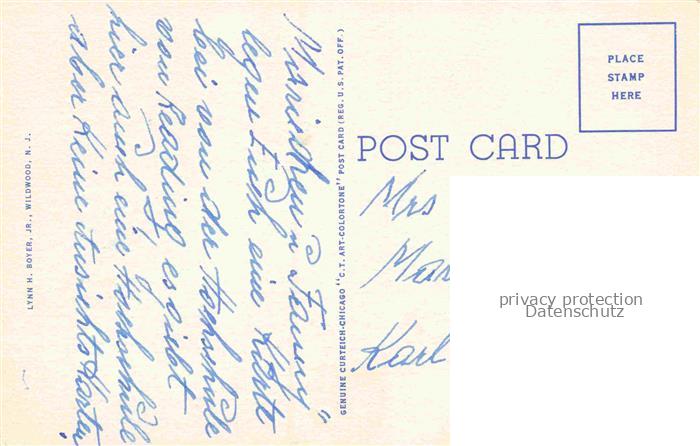 Mariechen u. Fanny"
legen Euch eine Karte
bei von der Hochschule
von Reading es giebt
hier auch eine Hochschule
aber keine Ansichtskarten
LYNN H. BOYER, JR., WILDWOOD, N. J.
GENUINE CURTEICH-CHICAGO "C.T. ART-COLORTONE" POST CARD (REG. U.S. PAT. OFF.)
POST CARD
PLACE
STAMP
HERE
Mrs
Karl
privacy protection
Datenschutz